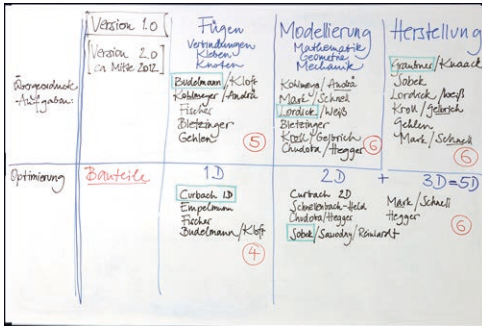 [Version 1.0]
[Version 2.0
ca Mitte 2012]
Übergeordnete
Aufgaben:
Fügen
Verbindungen
Kleben
Knoten
Budelmann/Kloft
Kohlmeyer/Andrä
Fischer
Bletzinger
Gehlen
5
Modellierung
Mathematik
Geometrie
Mechanik
Kohlmeyer/Andrä
Mark/Schnell
Lordick/Weiß
Bletzinger
Kroll/Gelbrich
Chudoba/Hegger
6
Herstellung
Grauthner/Knaack
Sobek
Lordick/Weiß
Kroll/Gelbrich
Gehlen
Mark/Schnell
6
Optimierung
Bauteile
1D
Curbach 1D
Empelmann
Fischer
Budelmann/Kloft
4
2D + 3D=5D
Curbach 2D
Schnellenbach-Held
Chudoba/Hegger
Sobek/Sawodny/Reinhardt
Mark/Schnell
Hegger
6